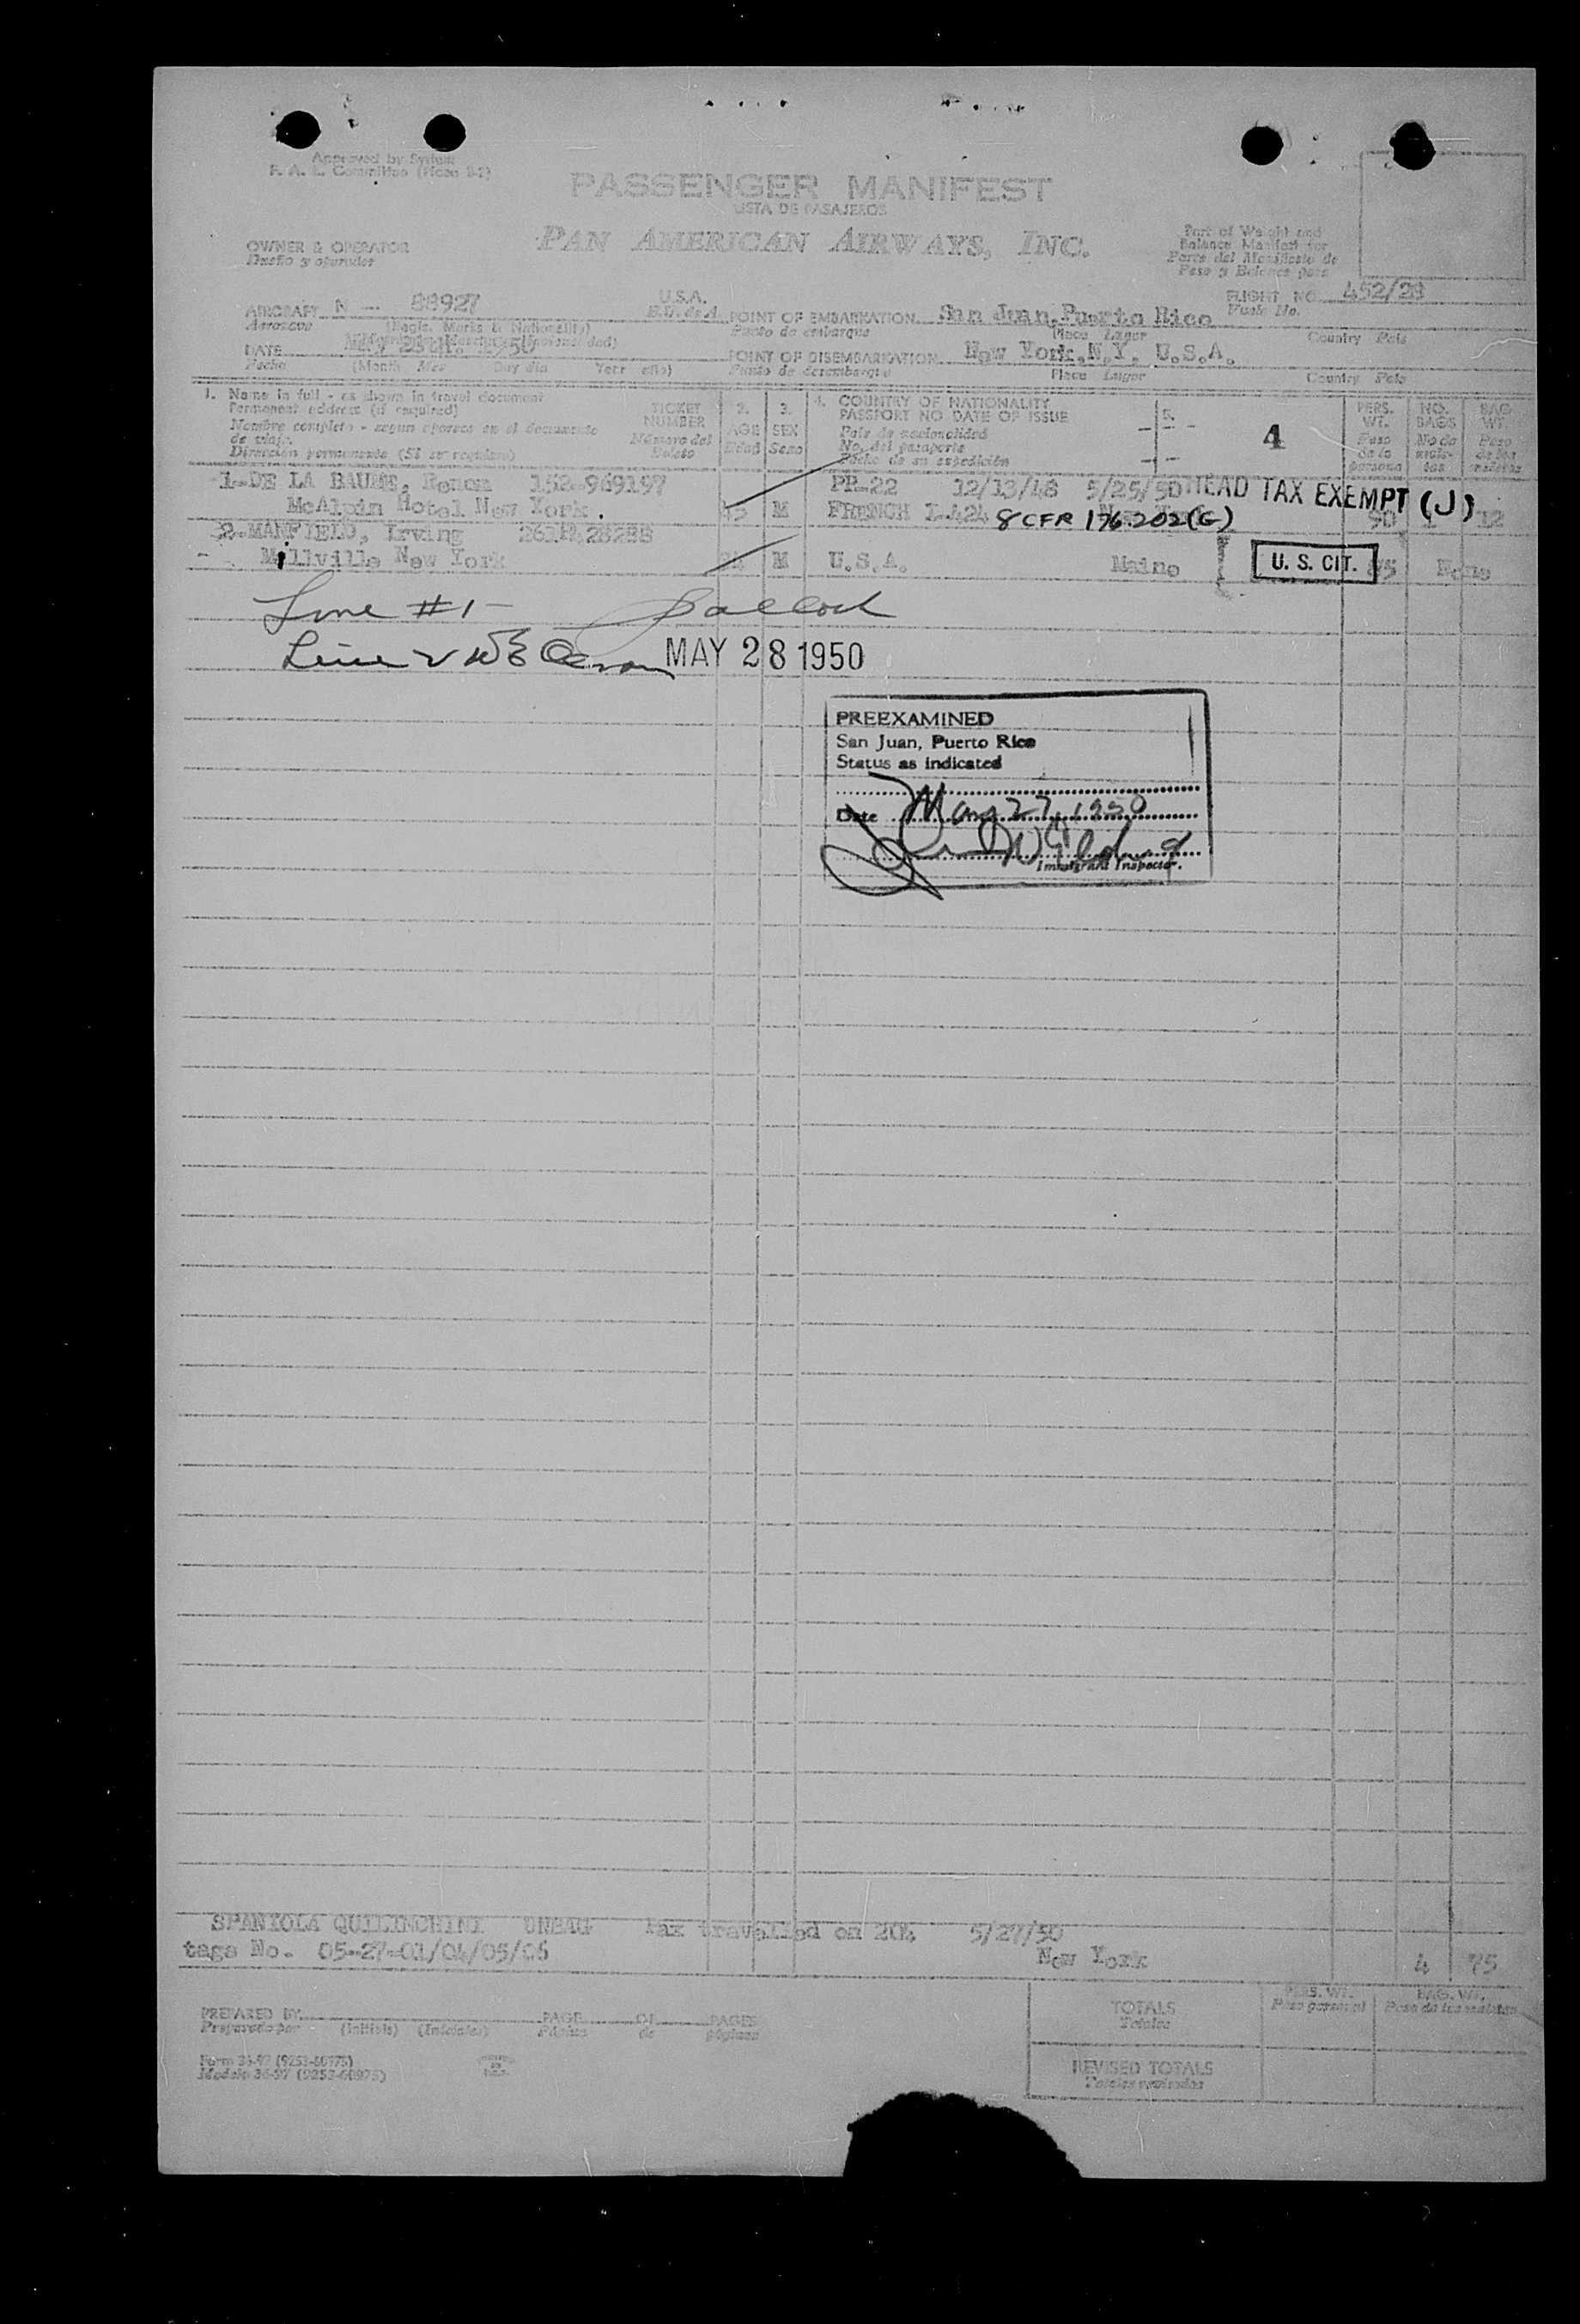 Approved by System
F. A. L. Committee (Plaza 9-2)
PASSENGER MANIFEST
LISTA DE PASAJEROS
PAN AMERICAN AIRWAYS, INC.
OWNER & OPERATOR
Dueño y operador
Part of Weight and
Balance Manifest for
Parte del Manifiesto de
Peso y Balance para
AIRCRAFT N - 88927 U.S.A.
Aeronave
E.U. de A.
POINT OF EMBARKATION San Juan, Puerto Rico
Punto de embarque
Place Lugar
Country País
FLIGHT NO. 452/28
Vuelo No.
DATE May 28th. 1950
Fecha (Month Mes Day día Year año)
POINT OF DISEMBARKATION New York, N.Y. U.S.A.
Punto de desembarque
Place Lugar
Country País
1. Name in full - as shown in travel document
Permanent address (if required)
Nombre completo - según aparece en el documento
de viaje.
Dirección permanente (Si se requiere)
TICKET
NUMBER
Número del
Boleto
2.
AGE
Edad
3.
SEX
Sexo
4. COUNTRY OF NATIONALITY
PASSPORT NO DATE OF ISSUE
País de nacionalidad
No. del pasaporte
Fecha de su expedición
5.
4
PERS.
WT.
Peso
de la
persona
NO.
BAGS
No de
male-
tas
BAG
WT.
Peso
de las
maletas
1-DE LA BAUME, 152-969197 PP-22 12/13/48 5/25/50 HEAD TAX EXEMPT (J)
McAlpin Hotel New York. M FRENCH 8 CFR 176.202(G) 90 1 12
2-MANFIELD, Irving
Millville New York M U.S.A. Maine U. S. CIT. None
Line #1-
Line 2
MAY 28 1950
PREEXAMINED
San Juan, Puerto Rico
Status as indicated
Date May 27, 1950
Immigrant Inspector.
SPANIOLA QUILINCHINI UNBAG Pax travelled on 204 5/27/50
tags No. 05-27-01/04/05/06 New York 4 75
PREPARED BY
Preparado por (Initials) (Iniciales)
PAGE OF PAGES
Página de páginas
TOTALS
Totales
PERS. WT.
Peso personal
BAG. WT.
Peso de las maletas
REVISED TOTALS
Totales revisados
Form 36-97 (9253-60975)
Modelo 36-97 (9253-60975)